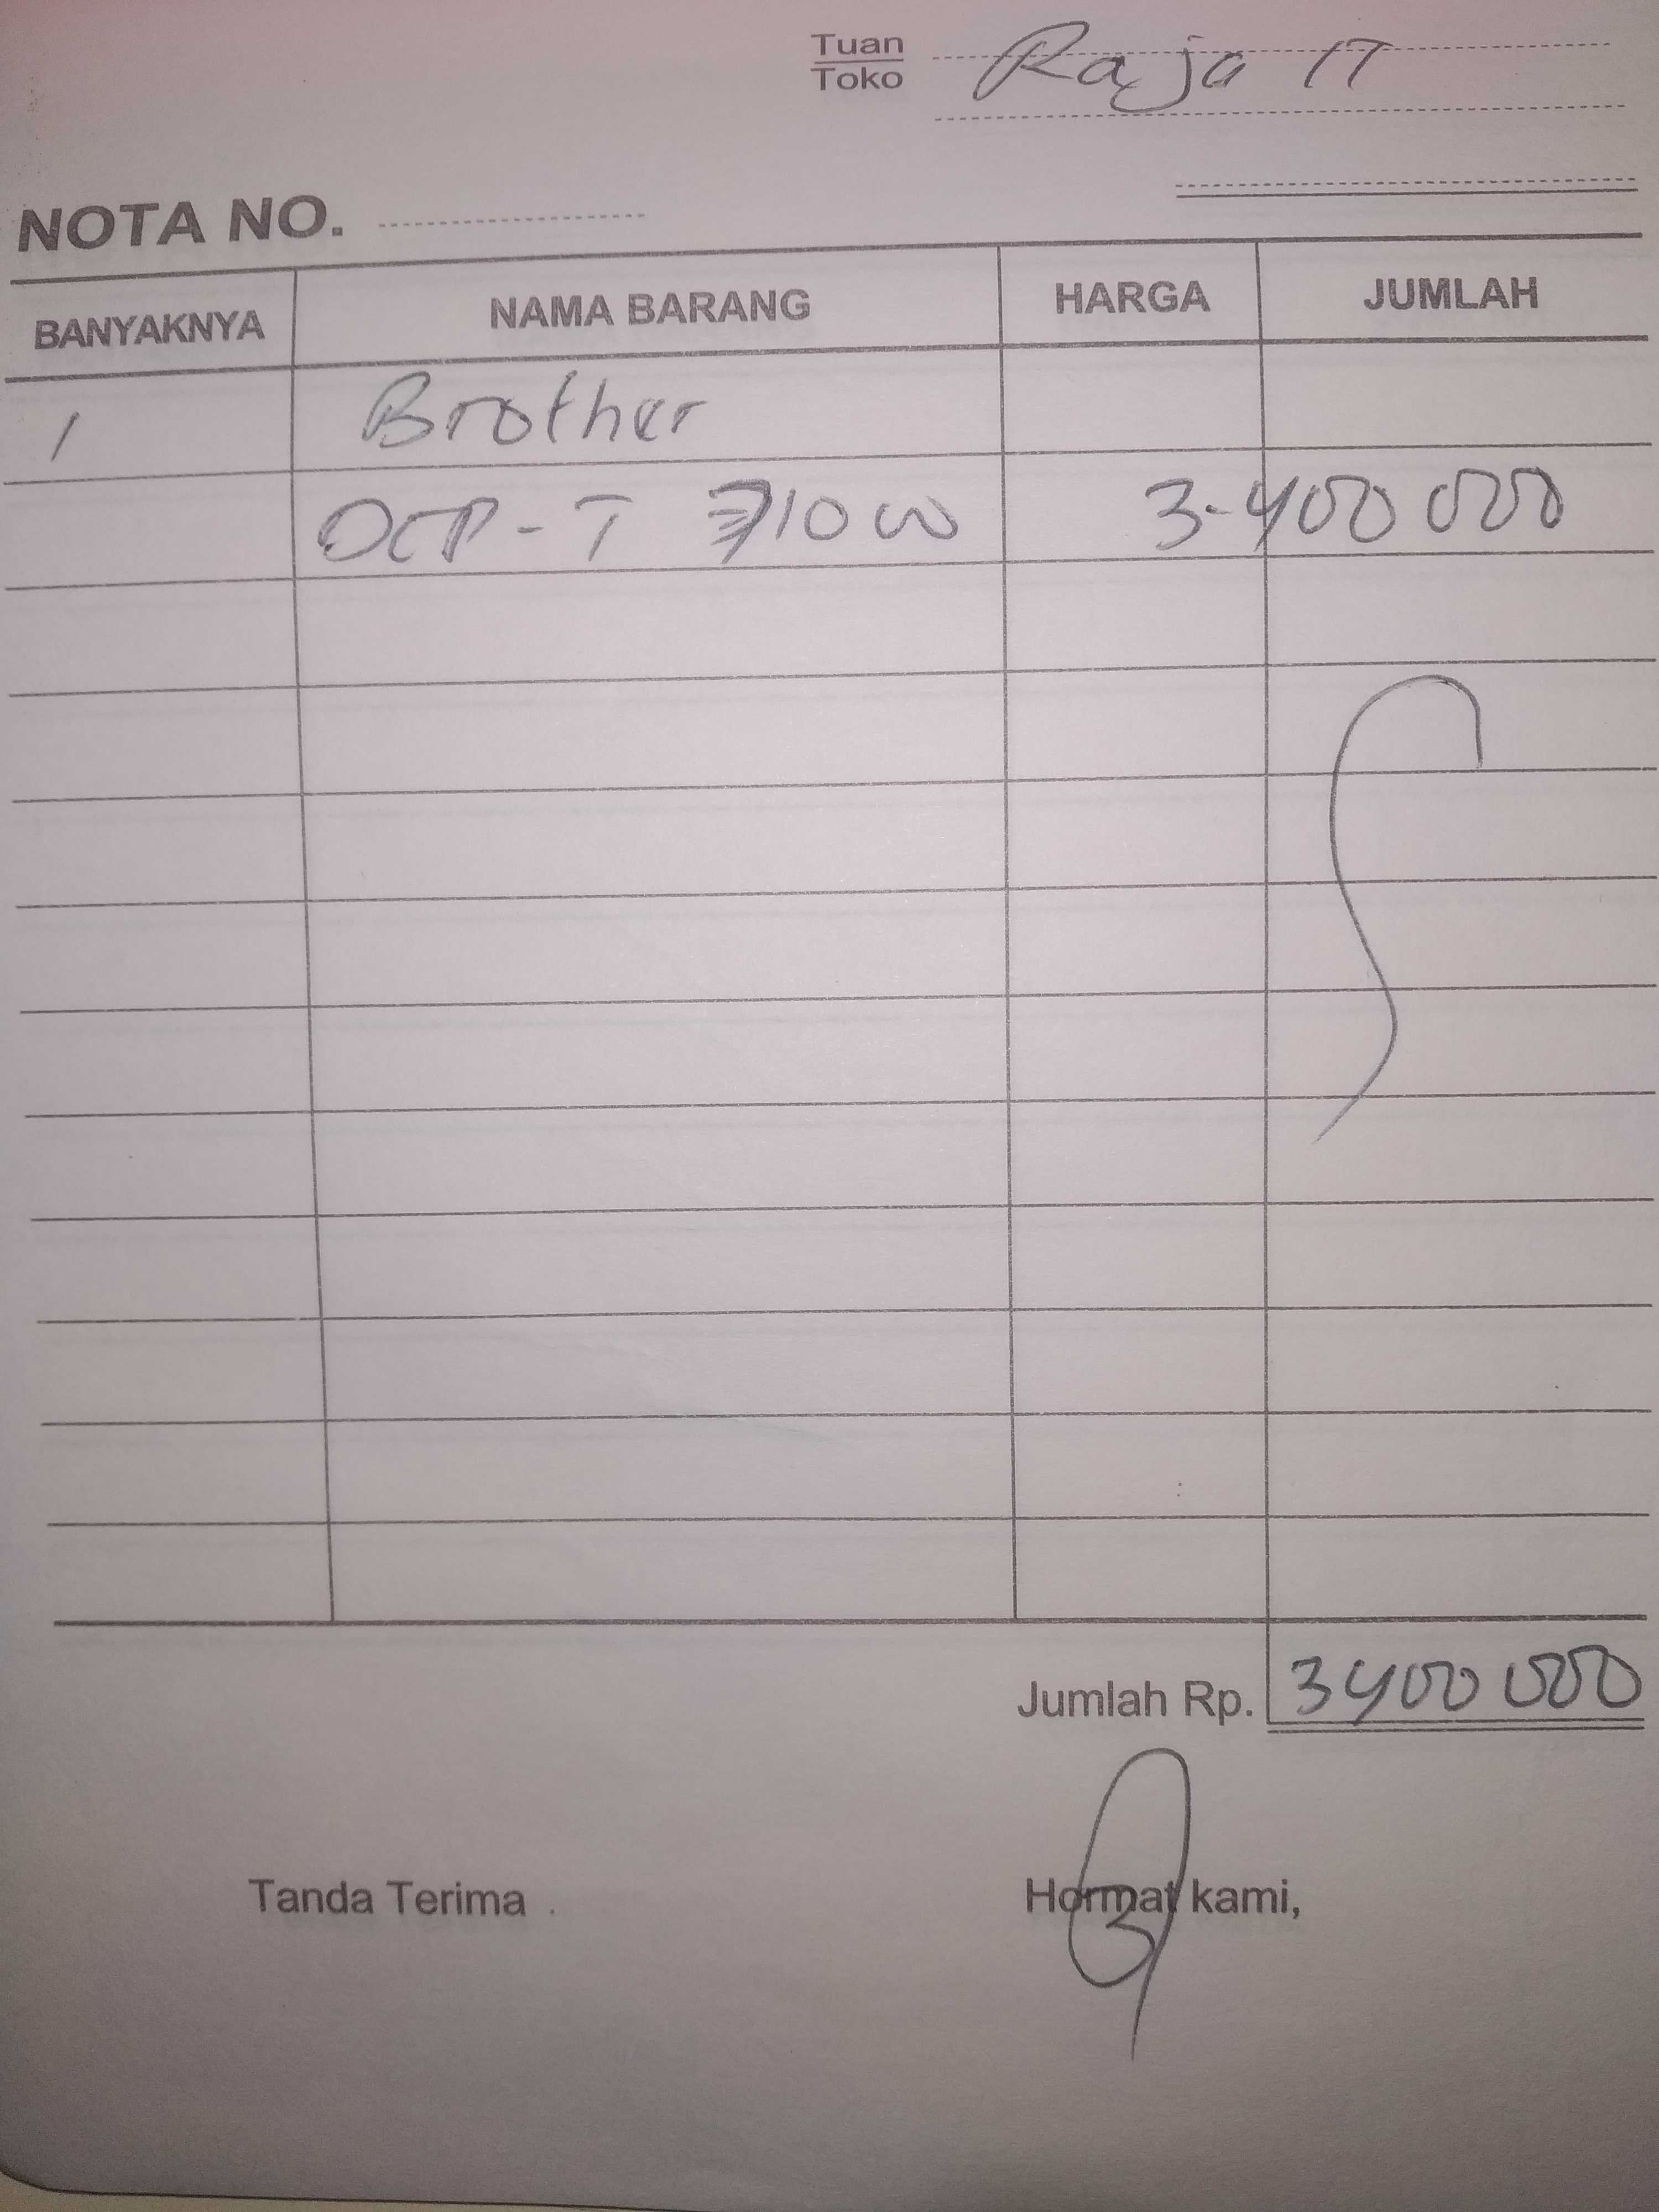 Tuan
Toko
Raja IT
NOTA NO.
BANYAKNYA NAMA BARANG HARGA JUMLAH
1 Brother
DCP-T 710W 3.400 000
Jumlah Rp. 3400 000
Tanda Terima Hormat kami,